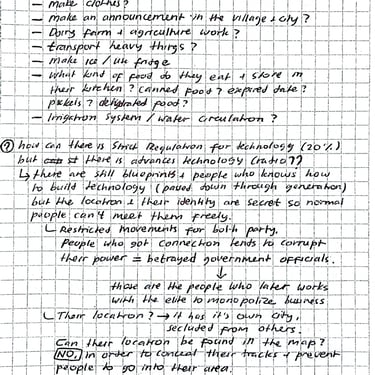 — Make clothes?
— Make an announcement in the village & city?
— Dairy farm & agriculture work?
— transport heavy things?
— make ice / use fridge
— What kind of food do they eat & store in
their kitchen? canned food? expired date?
pickels? dehydrated food?
— Irrigation system / water circulation?
⑦ how can there is strict Regulation for technology (20%)
but there is advances technology (radio??
↳ there are still blueprints & people who knows how
to build technology (passed down through generation)
but the location & their identity are secret so normal
people can't meet them freely.
↳ Restricted movements for both party.
People who got connection tends to corrupt
their power = betrayed government officials.
↓
those are the people who later works
with the elite to monopolize business
↳ Their location? → it has it's own city,
secluded from others.
Can their location be found in the map?
NO. In order to conceal their tracks & prevent
people to go into their area.